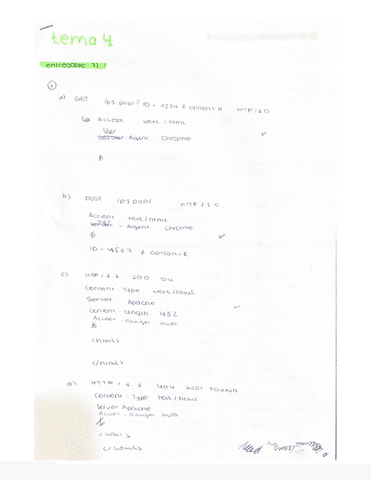 tema 4
entregable 7)
①
a) GET /p1.php?ID=1234&option=A HTTP/1.0
Accept text/html
User
Server-Agent Chrome
b) POST /p1.php/ HTTP/1.0
Accept text/html
User-Agent Chrome
ID=4567&option=B
c) HTTP/1.1 200 OK
Content-Type text/html
Server Apache
Content-Length 432
Accept-Ranges bytes
<html>
</html>
d) HTTP/1.1 404 NOT FOUND
Content-Type text/html
Server Apache
Accept-Ranges bytes
<html>
</html>